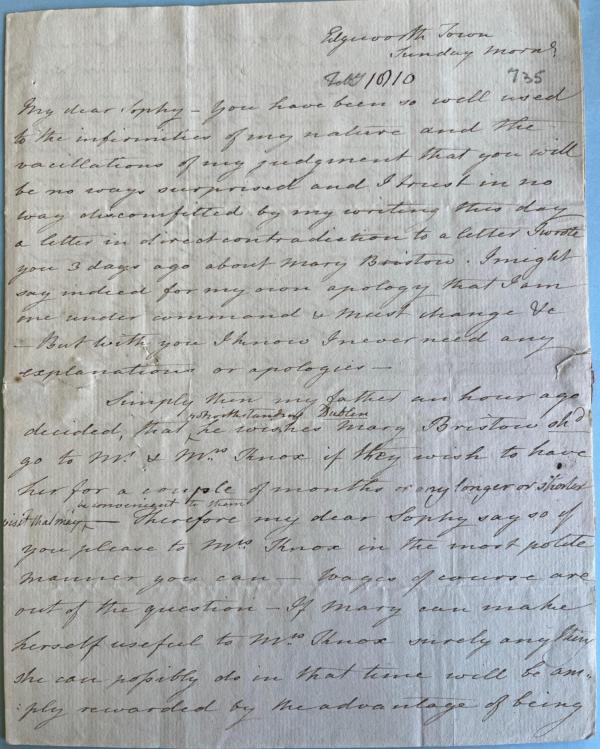 Edgeworth Town
Sunday Morng
1810 735
My dear Sophy – You have been so well used
to the infirmities of my nature and the
vacillations of my judgment that you will
be no ways surprised and I trust in no
way discomfitted by my writing this day
a letter in direct contradiction to a letter I wrote
you 3 days ago about Mary Bristow. I might
say indeed for my own apology that I am
one under command & must change &c
– But with you I know I never need any
explanations or apologies –
Simply then my father an hour ago
notwithstanding Dublin
decided, that he wishes Mary Bristow shd
go to Mr & Mrs Knox if they wish to have
her for a couple of months or any longer or shorter
be convenient to them
visit that may – Therefore my dear Sophy say so if
you please to Mrs Knox in the most polite
manner you can – Wages of course are
out of the question – If Mary can make
herself useful to Mrs Knox surely any thing
she can possibly do in that time will be am=
:ply rewarded by the advantage of being